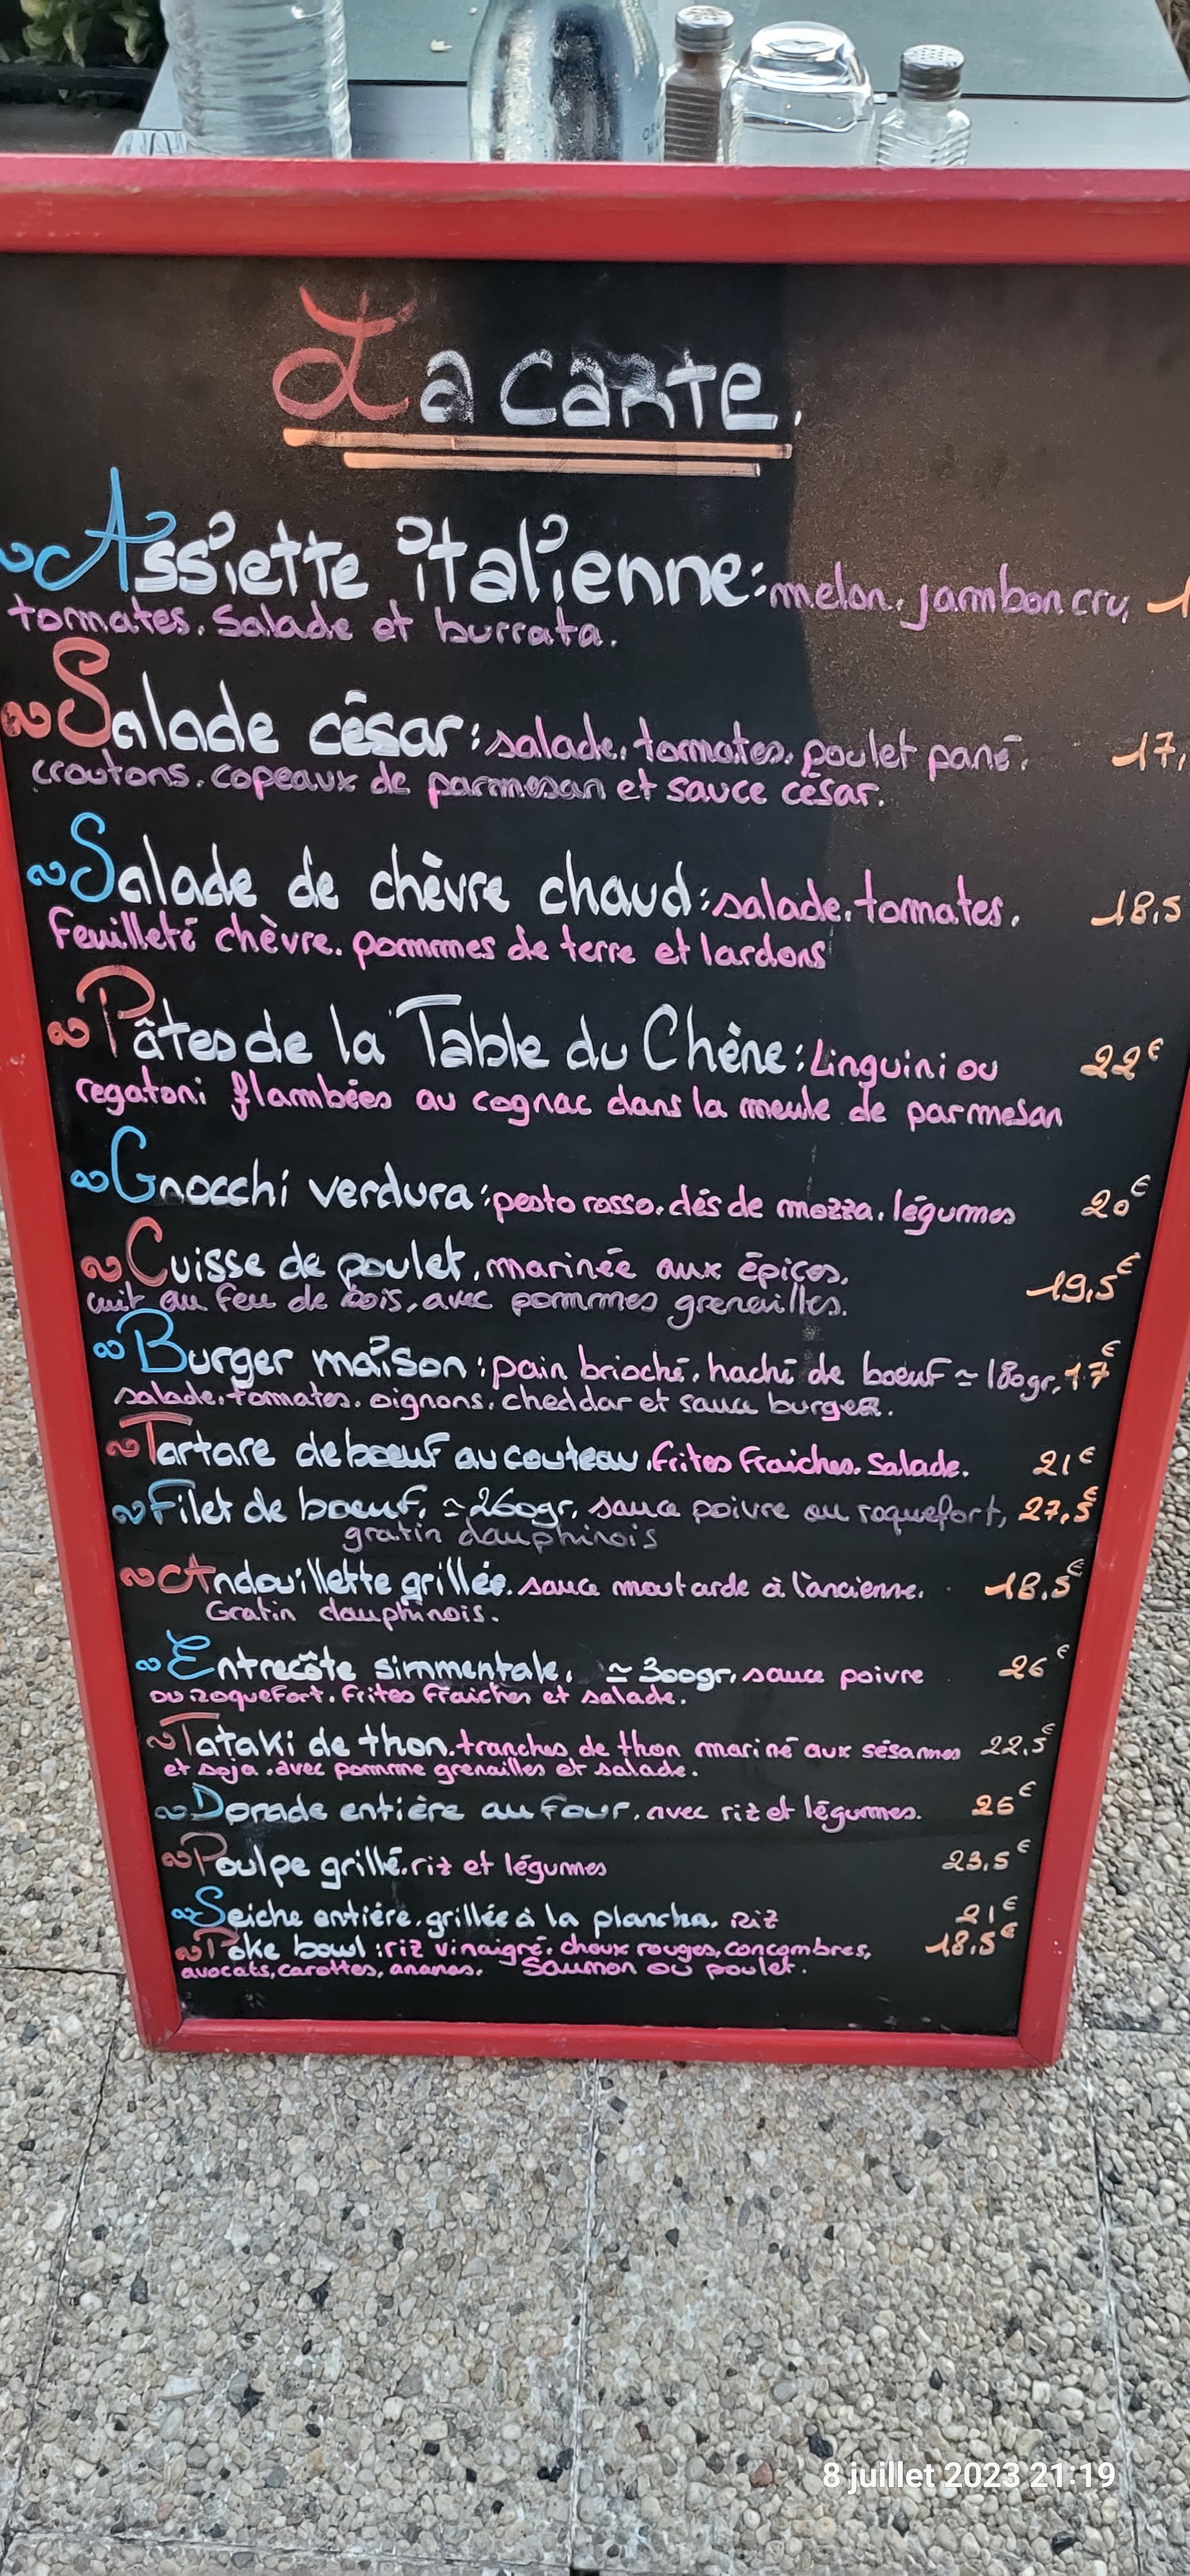 La carte.
Assiette italienne: melon, jambon cru,
tomates. Salade et burrata.
Salade césar: salade, tomates, poulet pané, 17,
croutons, copeaux de parmesan et sauce césar.
Salade de chèvre chaud: salade, tomates, 18,5
Feuilleté chèvre, pommes de terre et lardons
Pâtes de la Table du Chêne: Linguini ou 22€
regatoni flambées au cognac dans la meule de parmesan
Gnocchi verdura: pesto rosso, dés de mozza, légumes 20€
Cuisse de poulet, marinée aux épices, 19,5€
cuit au feu de bois, avec pommes grenailles.
Burger maison: pain brioché, haché de boeuf ≃ 180gr, 17€
salade, tomates, oignons, cheddar et sauce burger.
Tartare de boeuf au couteau, frites fraiches. Salade. 21€
Filet de boeuf, ≃260gr, sauce poivre ou roquefort, 27,5€
gratin dauphinois
Andouillette grillée, sauce moutarde à l'ancienne, 18,5€
Gratin dauphinois.
Entrecôte simmentale, ≃ 300gr, sauce poivre 26€
ou roquefort, frites fraiches et salade.
Tataki de thon, tranches de thon mariné aux sésames 22,5€
et soja, avec pomme grenailles et salade.
Dorade entière au four, avec riz et légumes. 25€
Poulpe grillé, riz et légumes 23,5€
Seiche entière, grillée à la plancha, riz 21€
Poke bowl: riz vinaigré, choux rouges, concombres, 18,5€
avocats, carottes, ananas, Saumon ou poulet.
8 juillet 2023 21:19